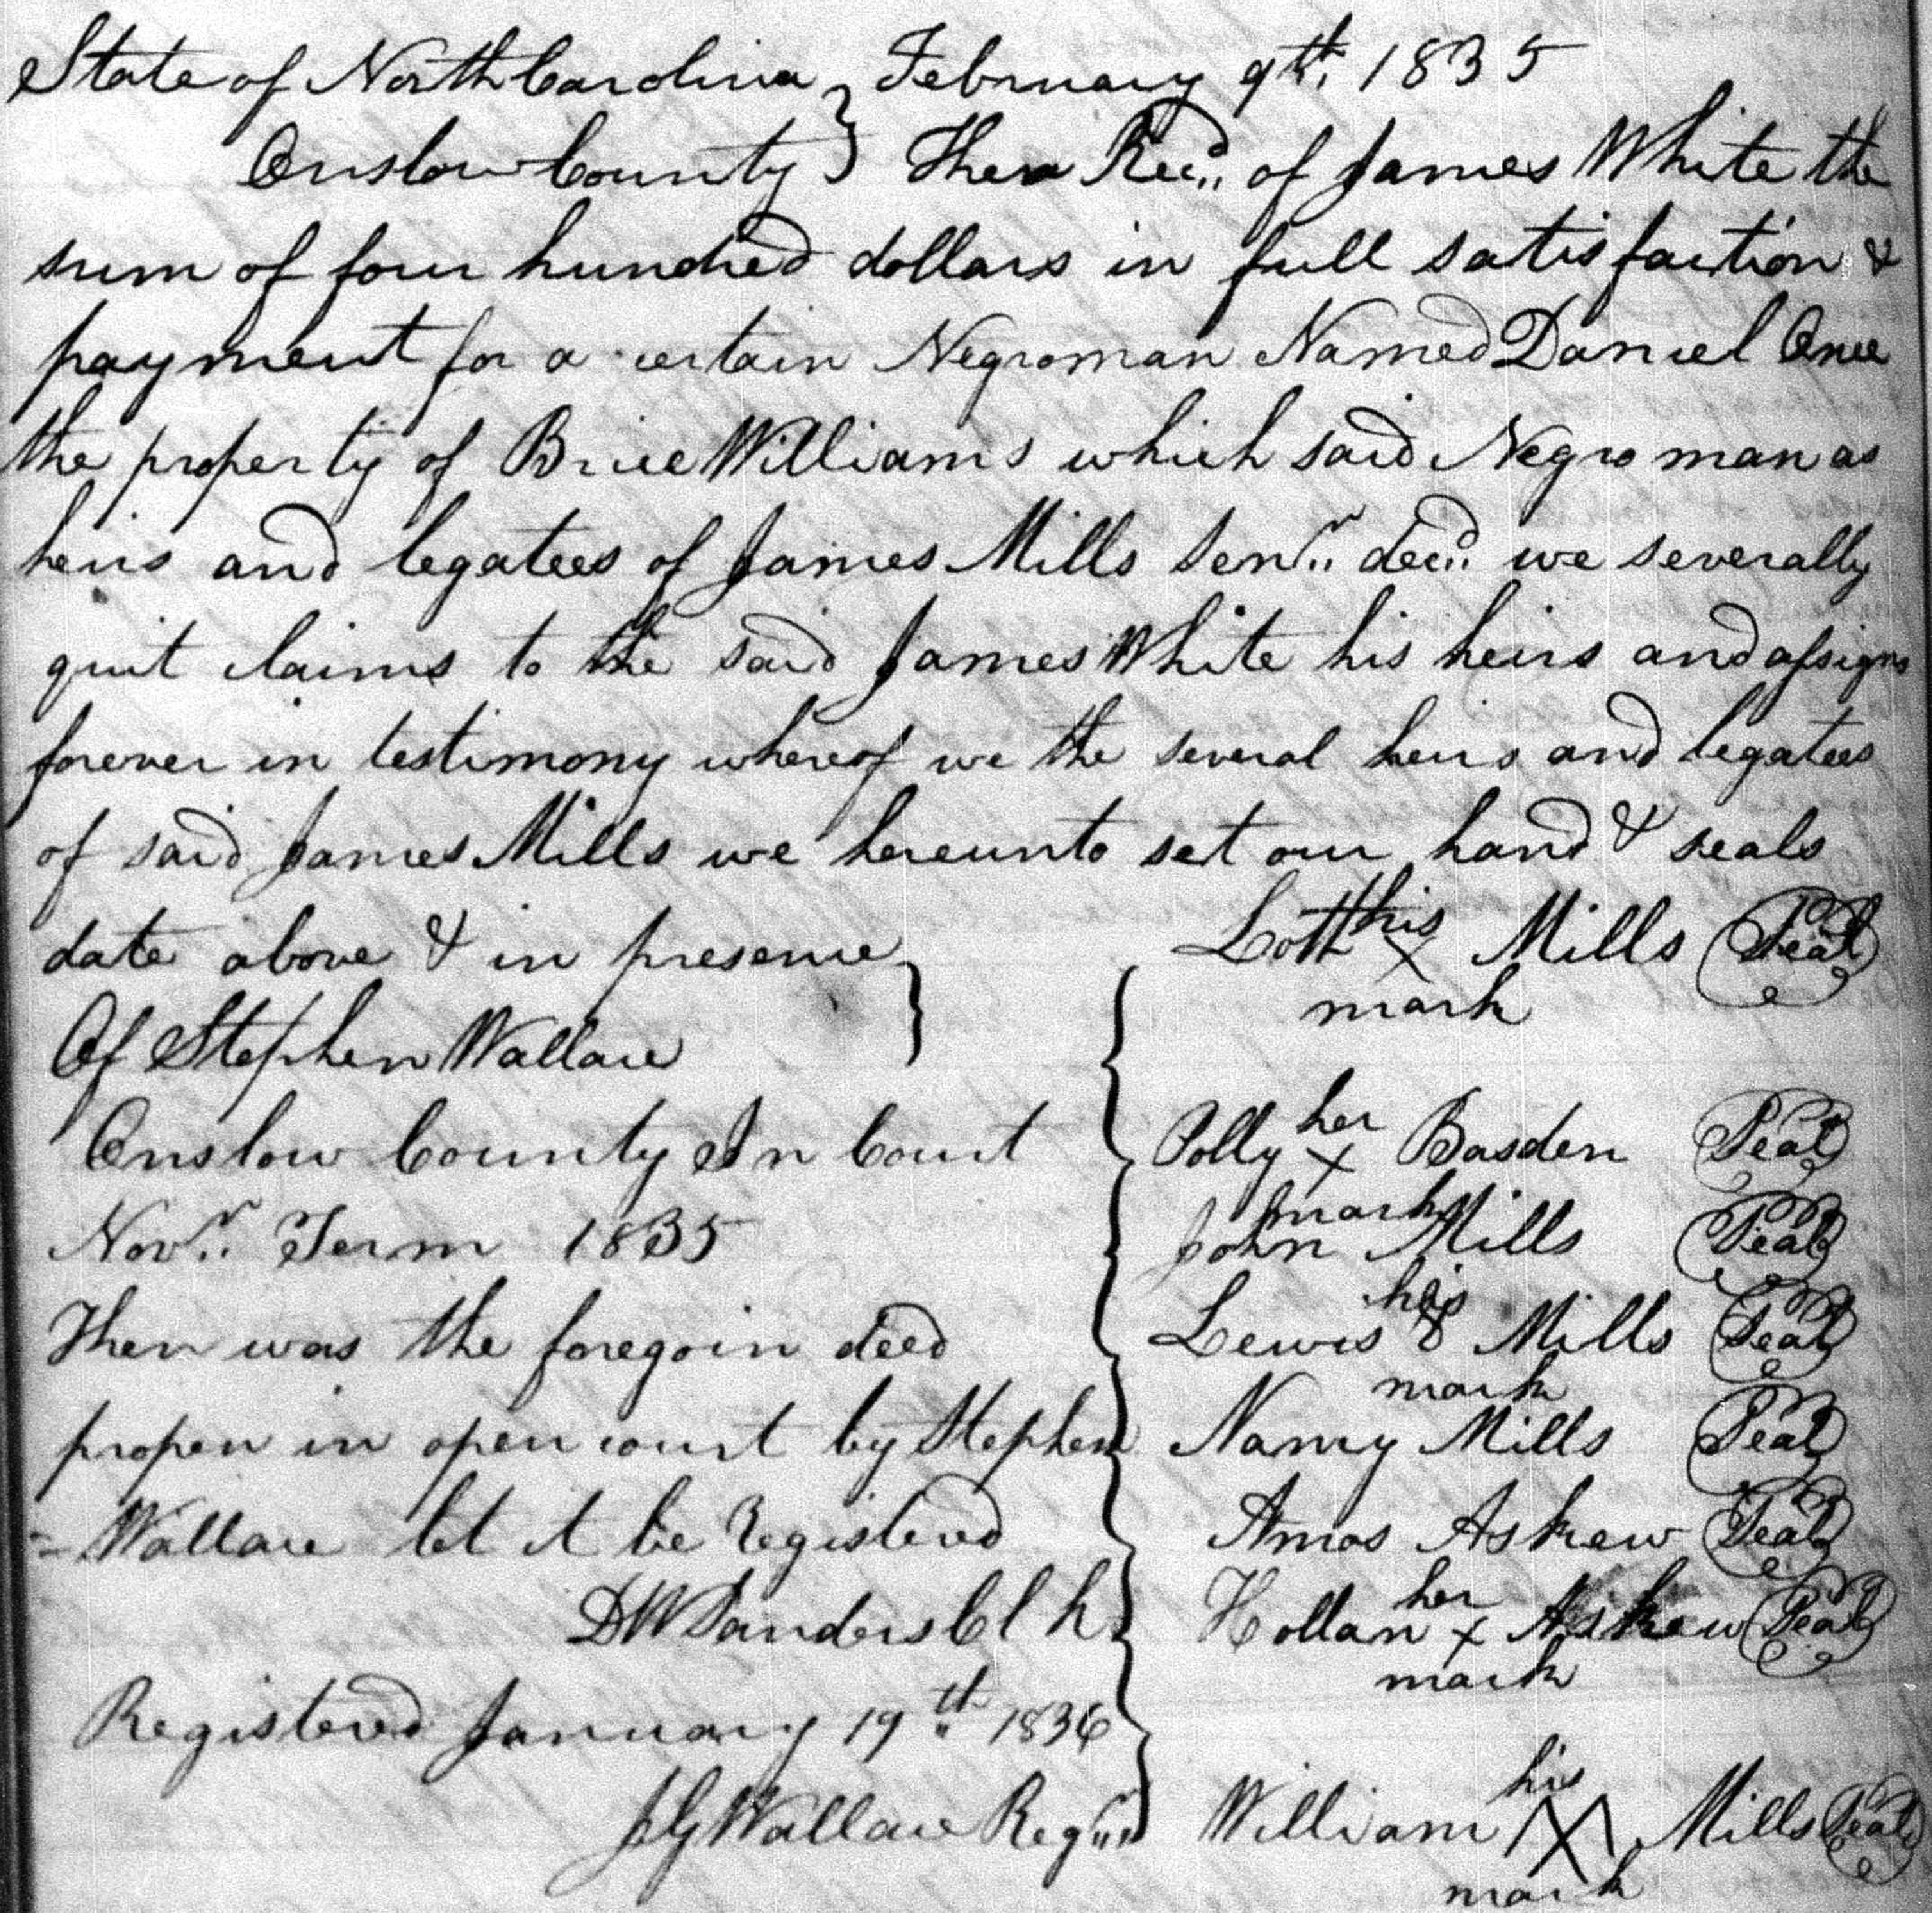 State of North Carolina } February 9th, 1835
Onslow County } Then Recd. of James White the
sum of four hundred dollars in full satisfaction &
payment for a certain Negroman Named Daniel Once
the property of Brice Williams which said Negro man as
heirs and legatees of James Mills Senr. decd. we severally
quit claims to the said James White his heirs and assigns
forever in testimony whereof we the several heirs and legatees
of said James Mills we hereunto set our hand & seals
date above & in presence
Of Stephen Wallace
Onslow County In Court
Novr. Term 1835
Then was the foregoin deed
propen in open court by Stephen
= Wallace let it be Registered
DW Sanders Cl k
Registered January 19th 1836
JG Wallace Regr.
Lott his x mark Mills Seal
Polly her x mark Basden Seal
John Mills Seal
Lewis his mark Mills Seal
Nancy Mills Seal
Amos Askew Seal
Hollan her x mark Askew Seal
William his X mark Mills Seal